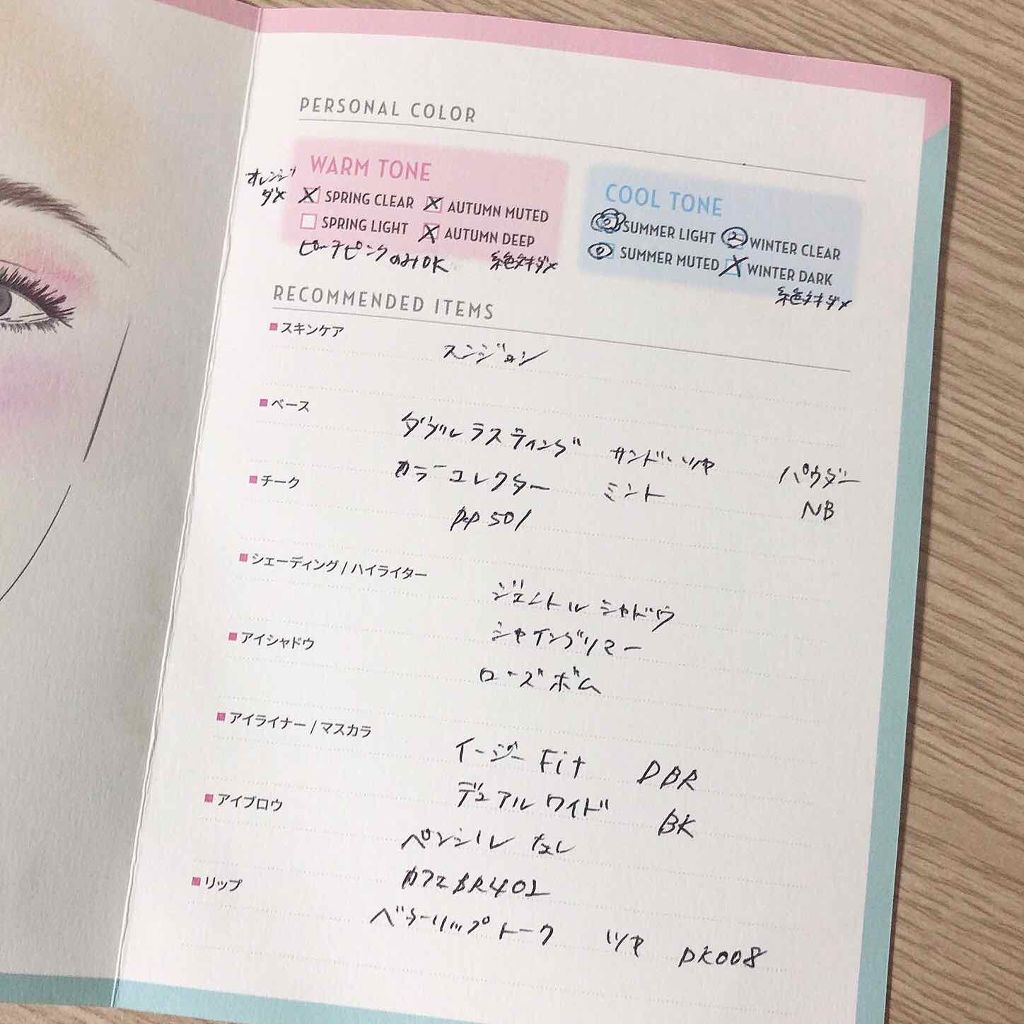 PERSONAL COLOR
オレンジ
ダメ
WARM TONE
SPRING CLEAR
AUTUMN MUTED
SPRING LIGHT
AUTUMN DEEP
ピーチピンクのみOK
絶対ダメ
COOL TONE
SUMMER LIGHT
② WINTER CLEAR
SUMMER MUTED
WINTER DARK
絶対ダメ
RECOMMENDED ITEMS
スキンケア
スンジョン
ベース
ダブルラスティング サンド・ツヤ パウダー
カラーコレクター ミント NB
チーク
PP501
シェーディング / ハイライター
ジェントルシャドウ
シャイングリマー
アイシャドウ
ローズボム
アイライナー / マスカラ
イージーFit DBR
デュアルワイド BK
アイブロウ
ペンシル なし
カフェBR402
リップ
ベターリップトーク ツヤ PK008